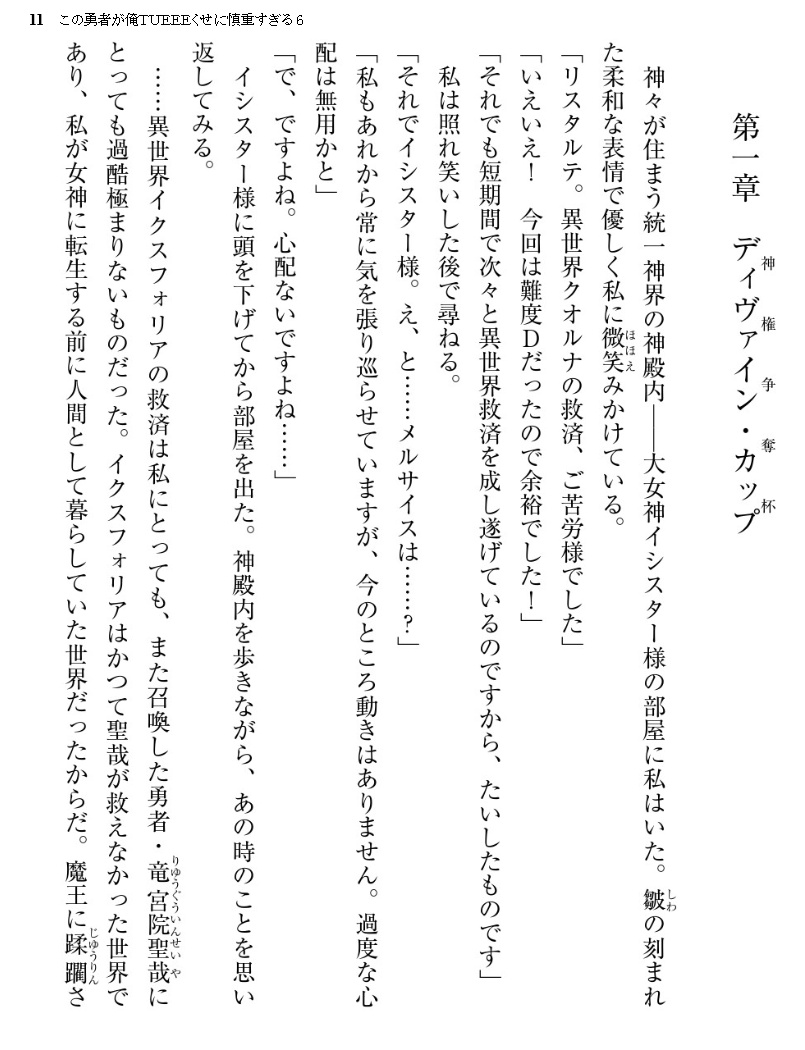 11 この勇者が俺TUEEEくせに慎重すぎる6
第一章 ディヴァイン・カップ
神権争奪杯
神々が住まう統一神界の神殿内――大女神イシスター様の部屋に私はいた。皺の刻まれ
しわ
た柔和な表情で優しく私に微笑みかけている。
ほほえ
「リスタルテ。異世界クオルナの救済、ご苦労様でした」
「いえいえ！ 今回は難度Dだったので余裕でした！」
「それでも短期間で次々と異世界救済を成し遂げているのですから、たいしたものです」
私は照れ笑いした後で尋ねる。
「それでイシスター様。え、と……メルサイスは……？」
「私もあれから常に気を張り巡らせていますが、今のところ動きはありません。過度な心
配は無用かと」
「で、ですよね。心配ないですよね……」
イシスター様に頭を下げてから部屋を出た。神殿内を歩きながら、あの時のことを思い
返してみる。
……異世界イクスフォリアの救済は私にとっても、また召喚した勇者・竜宮院聖哉に
りゆうぐういんせいや
とっても過酷極まりないものだった。イクスフォリアはかつて聖哉が救えなかった世界で
あり、私が女神に転生する前に人間として暮らしていた世界だったからだ。魔王に蹂躙さ
じゆうりん